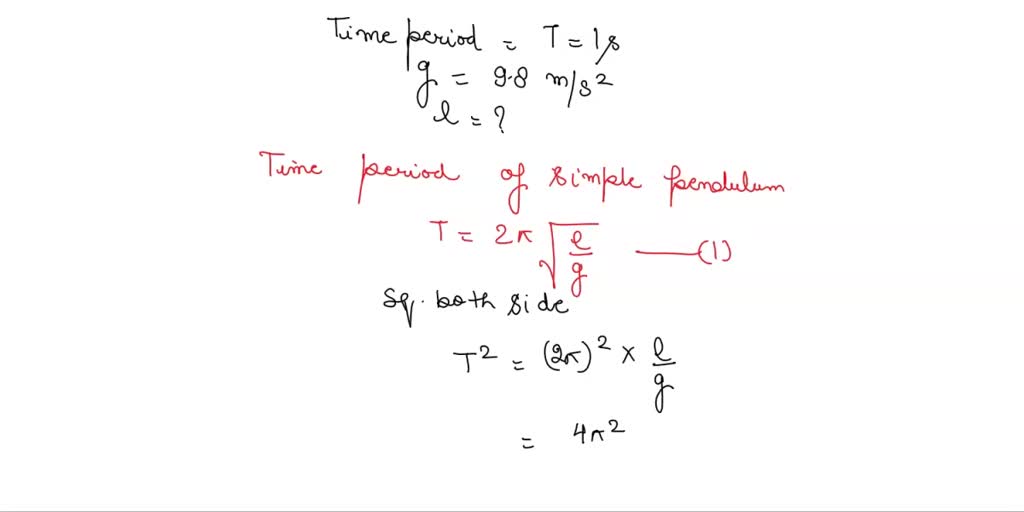 Time period = T = 1s
g = 9.8 m/s²
l = ?
Time period of simple pendulum
T = 2π √(l/g) ——(1)
Sq. both side
T² = (2π)² × l/g
= 4π²